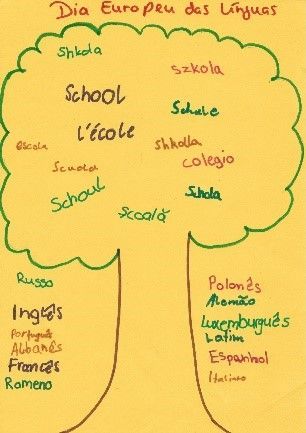 Dia Europeu das Línguas
Shkola
szkola
School
Schule
l'école
escola
Shkolla
colegio
Scuola
Schoul
Schola
Școală
Russo
Inglês
Português
Albanês
Francês
Romeno
Polonês
Alemão
Luxemburguês
Latim
Espanhol
Italiano